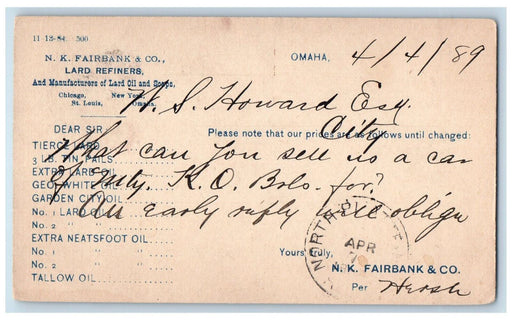 11-13-84. 500.
N. K. FAIRBANK & CO.,
LARD REFINERS,
And Manufacturers of Lard Oil and Soaps,
Chicago, New York,
St. Louis, Omaha.
OMAHA, 4/4/89
H. S. Howard Esq.
City
DEAR SIR
Please note that our prices are as follows until changed:
What can you sell us a car
of Inty. K. O. Bols. for?
An early reply will oblige
TIERCE LARD
3 LB. TIN PAILS
EXTRA LARD OIL
GEO. WHITE OIL
GARDEN CITY OIL
No. 1 LARD
No. 2 " "
EXTRA NEATSFOOT OIL
No. 1 " "
No. 2 " "
TALLOW OIL
NORTH PLATTE
APR
7
Yours truly,
N. K. FAIRBANK & CO.
Per